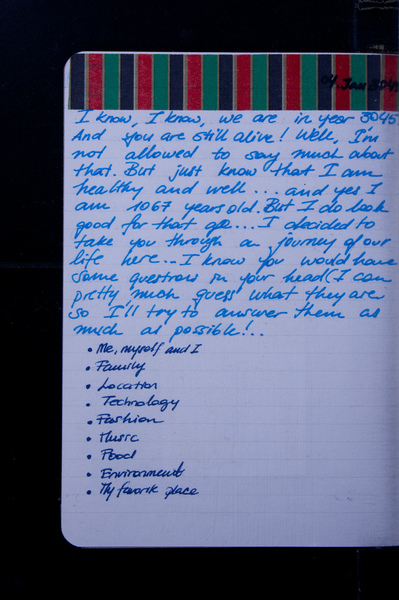 04. Jan 3045
I know, I know, we are in year 3045
And you are still alive! Well, I'm
not allowed to say much about
that. But just know that I am
healthy and well ... and yes I
am 1067 years old. But I do look
good for that age... I decided to
take you through a journey of our
life here... I know you would have
some questions in your head (I can
pretty much guess what they are
so I'll try to answer them as
much as possible!..
• Me, myself and I
• Family
• Location
• Technology
• Fashion
• Music
• Food
• Environment
• My favorite place